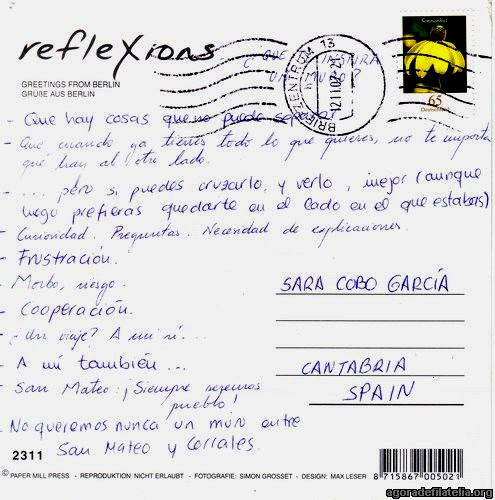 reflexions
GREETINGS FROM BERLIN
GRÜßE AUS BERLIN
¿QUE TE INSPIRA
UN MURO?
BRIEFZENTRUM 13
12.11.07
65
Deutschland
- Que hay cosas que no puede separar
- Que cuando ya tienes todo lo que quieres, no te importa
qué hay al otro lado.
- ... pero si puedes cruzarlo, y verlo, mejor (aunque
luego prefieras quedarte en el lado en el que estabas)
- Curiosidad. Preguntas. Necesidad de explicaciones.
- FRUSTRACIÓN.
- Morbo, riesgo.
- COOPERACIÓN.
- ¿Un viaje? A mi sí...
- A mí también...
- San Mateo: ¡Siempre seremos
pueblo!
- No queremos nunca un muro entre
San Mateo y Corrales.
SARA COBO GARCÍA
CANTABRIA
SPAIN
2311
© PAPER MILL PRESS - REPRODUKTION NICHT ERLAUBT - FOTOGRAFIE: SIMON GROSSET - DESIGN: MAX LESER
8 715867 005021
agoradefilatelia.org